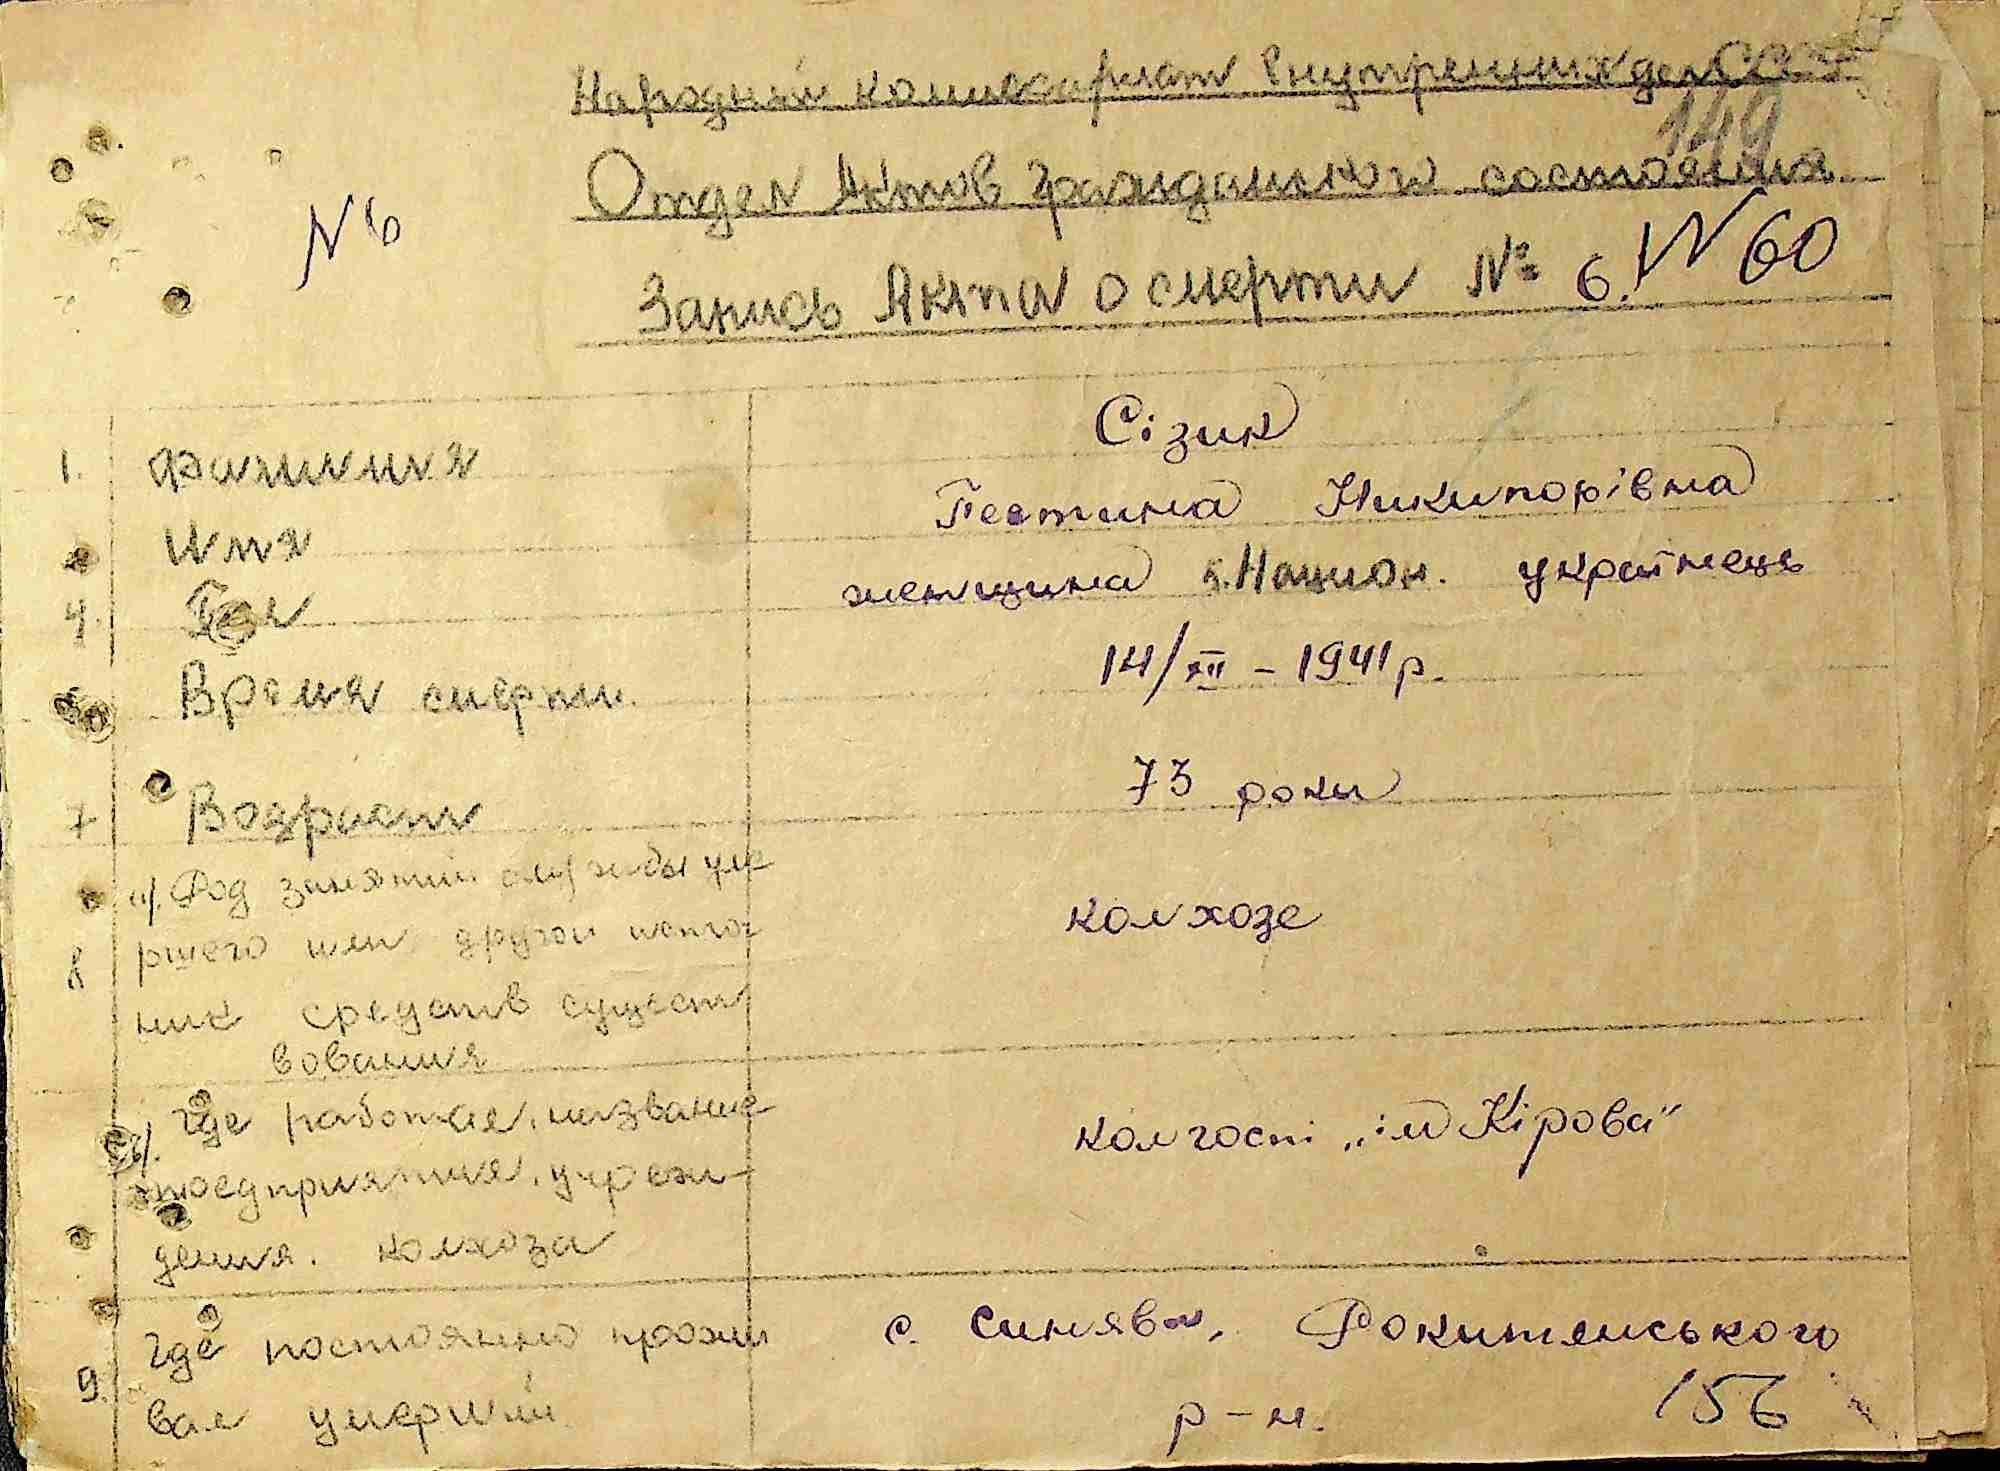 Народный комиссариат внутренних дел СССР
149
Отдел Актов гражданского состояния
N 6
Запись Акта о смерти № 6. N 60
1. Фамилия Сізик
Имя Никипорівна
4. Пол женщина 5. Национ. українець
Время смерти. 14/XII - 1941 р.
7 Возраст 73 роки
а/. Род занятий службы уме
8 ршего или другой источ колхозе
ник средств сущест
вования
Где работал, название
б/. колгосп і „ім Кірова"
предприятия, учреж-
дения. колхоза
Где постоянно прожи с. Синява, Рокитянського
9. вал умерший р-н. 156